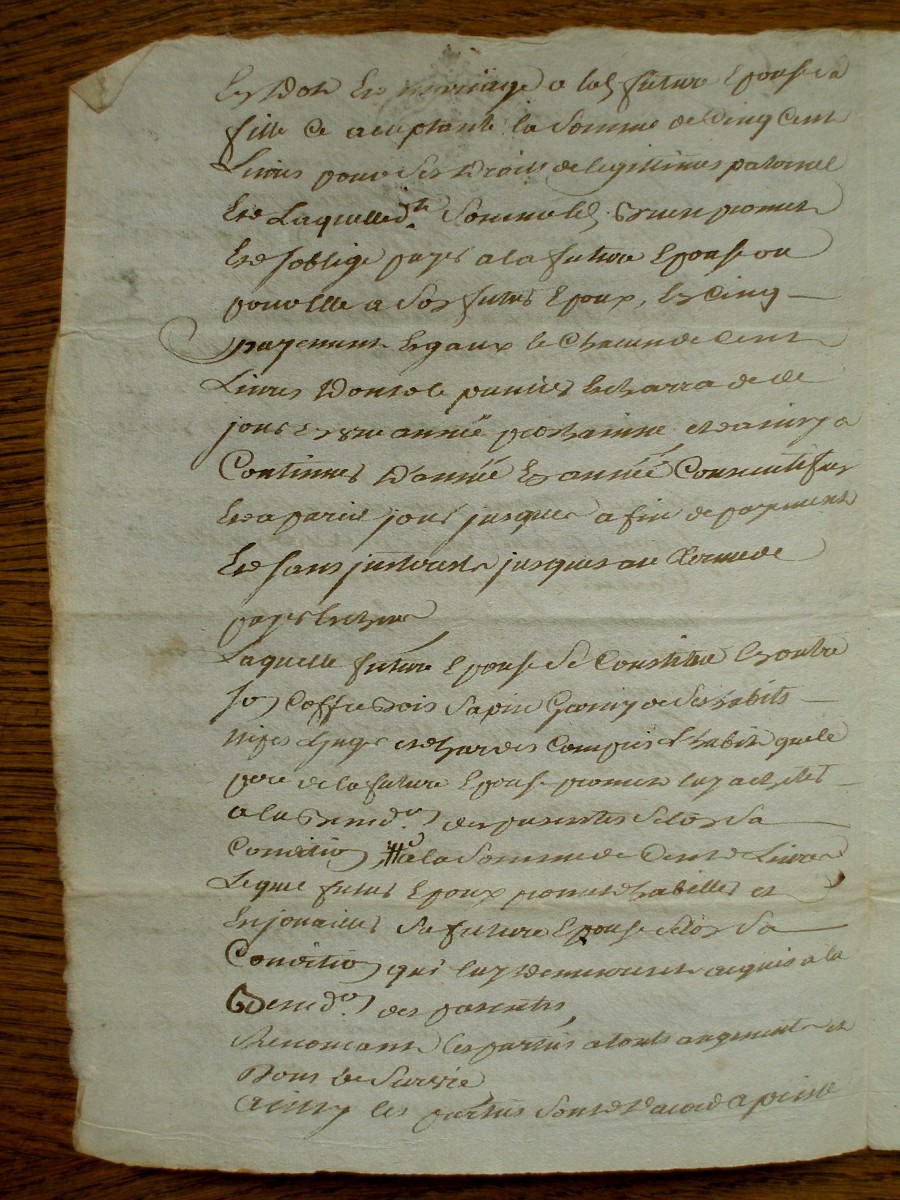 en dot et mariage a lad future Epouse sa
fille ce aceptante la Somme de Cinq Cent
Livres pour Ses Droits de legittimes paternel
Et Laquelle d.te Somme led promet
Et Soblige payer a la future Epouse ou
pour Elle a Son futur Epoux, En Cinq
payement Egaux de Chacun de Cent
Livres Dont le premier Echerra de ce
jour En une année prochaine et ainsy a
Continuer D'année En année Consecutifves
Et a pareil jour jusques a fin de payement
Et Sans jnterest jusques au terme de
payes Echeue
Laquelle future Epouse Se Constitue En outre
Son Coffre bois Sapin Garny de Ses habits
nipes Linges et hardes Compris L'habit que le
pere de la future Epouse promet luy achepter
a la des parentes Selon Sa
Condition a la Somme de Cent Livres
Le que futur Epoux promet habiller et
Enjouailler Sa future Epouse Selon Sa
Condition qui luy Demeureront acquis a la
des parentes
Renoncant les parties a touts augments et
Dons de Survie
Ainsy les parties Sont D'acord a peine